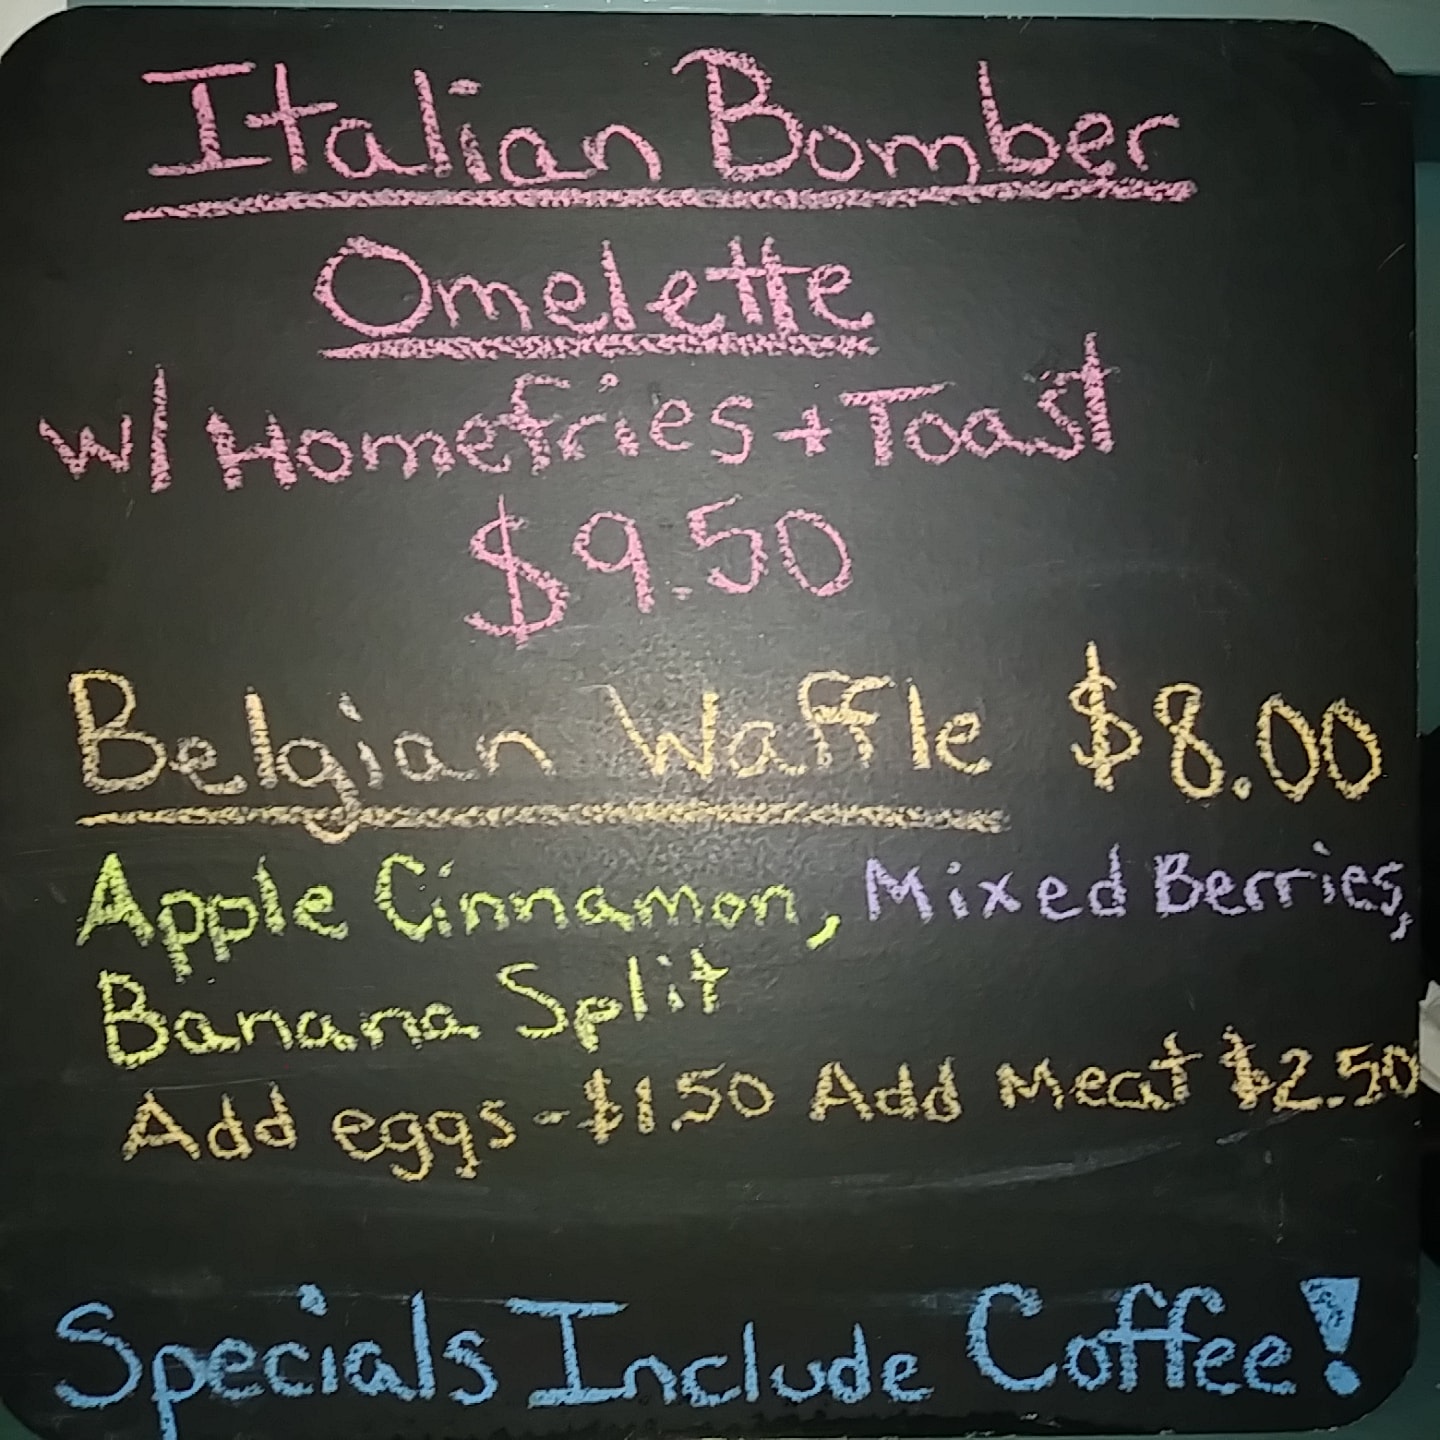 Italian Bomber
Omelette
w/ Homefries + Toast
$9.50
Belgian Waffle $8.00
Apple Cinnamon, Mixed Berries,
Banana Split
Add eggs - $1.50 Add Meat $2.50
Specials Include Coffee!